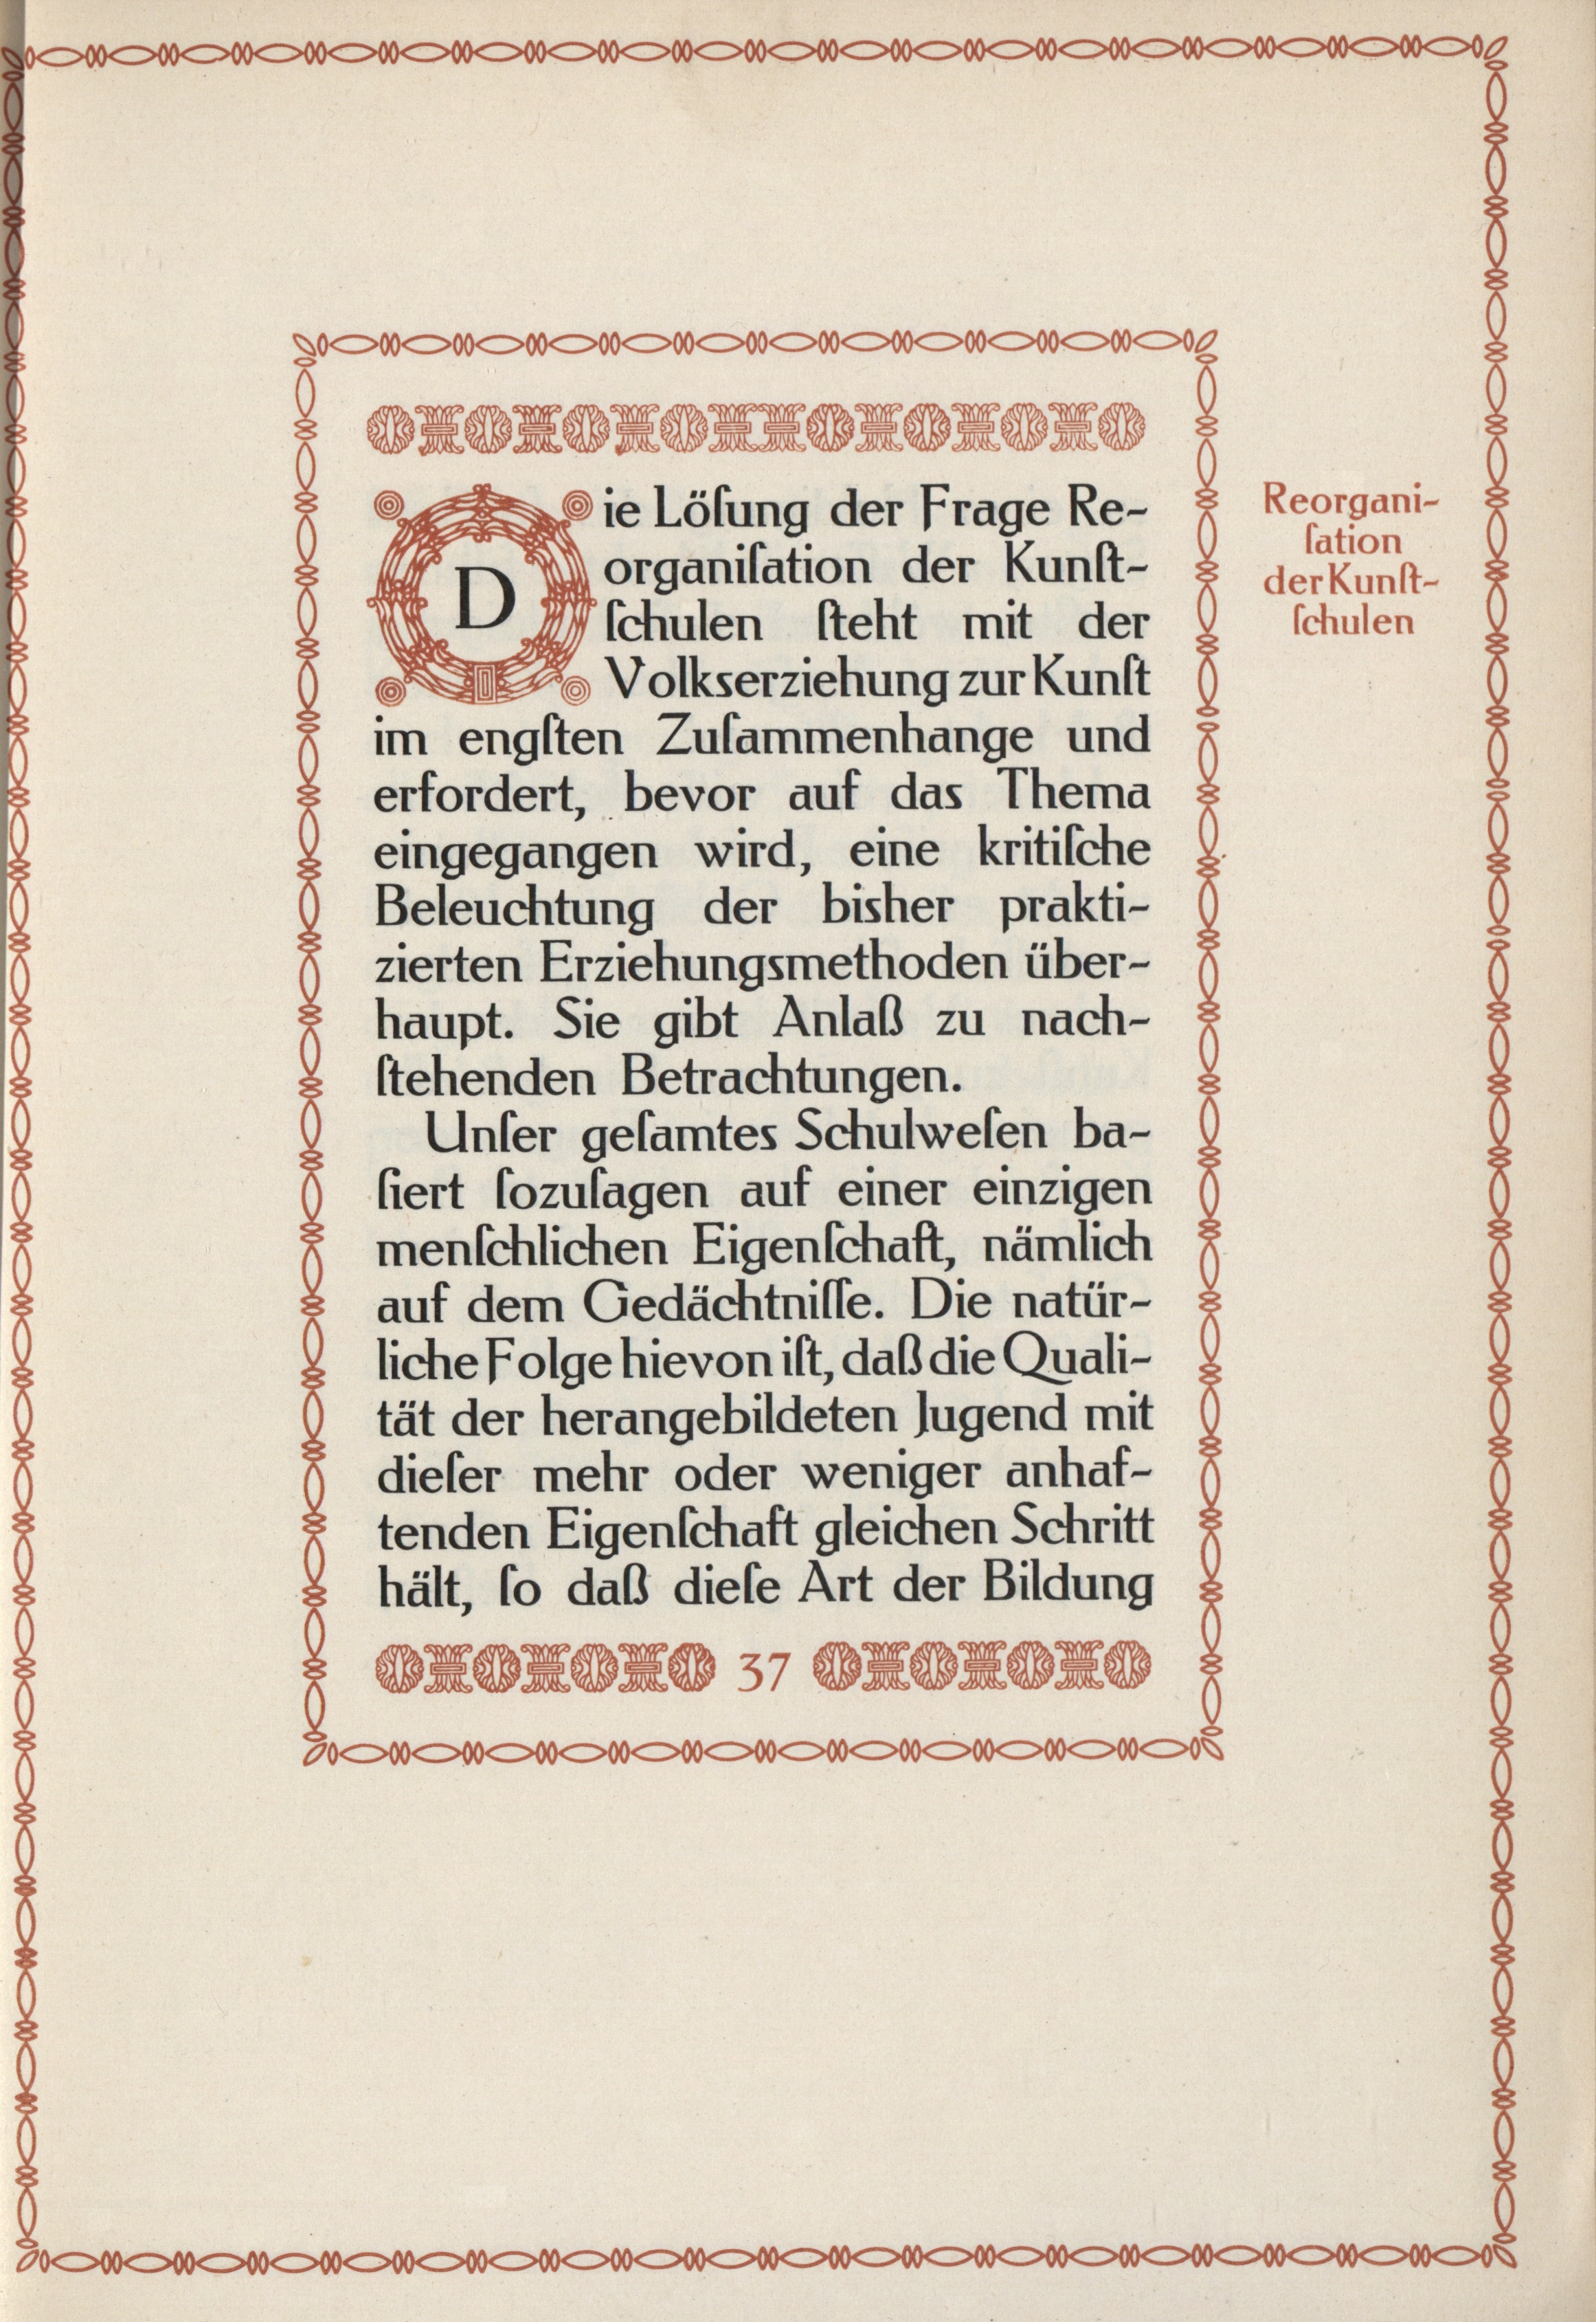 Die Löſung der Frage Re-
organiſation der Kunſt-
ſchulen ſteht mit der
Volkserziehung zur Kunſt
im engſten Zuſammenhange und
erfordert, bevor auf das Thema
eingegangen wird, eine kritiſche
Beleuchtung der bisher prakti-
zierten Erziehungsmethoden über-
haupt. Sie gibt Anlaß zu nach-
ſtehenden Betrachtungen.
Unſer geſamtes Schulweſen ba-
ſiert ſozuſagen auf einer einzigen
menſchlichen Eigenſchaft, nämlich
auf dem Gedächtniſſe. Die natür-
liche Folge hievon iſt, daß die Quali-
tät der herangebildeten Jugend mit
dieſer mehr oder weniger anhaf-
tenden Eigenſchaft gleichen Schritt
hält, ſo daß dieſe Art der Bildung
37
Reorgani-
ſation
der Kunſt-
ſchulen